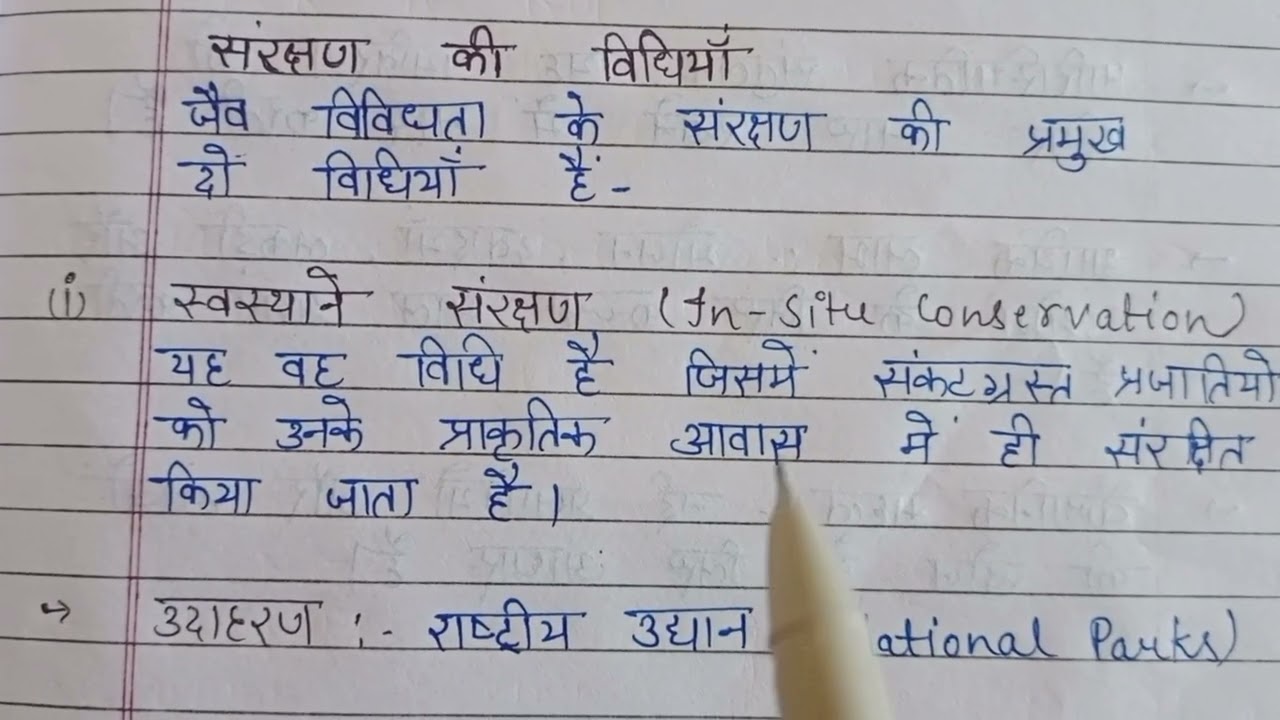 संरक्षण की विधियाँ
जैव विविधता के संरक्षण की प्रमुख
दो विधियाँ हैं -
(i) स्वस्थाने संरक्षण (In-Situ Conservation)
यह वह विधि है जिसमें संकटग्रस्त प्रजातियो
को उनके प्राकृतिक आवास में ही संरक्षित
किया जाता है।
→ उदाहरण :- राष्ट्रीय उद्यान ational Parks)